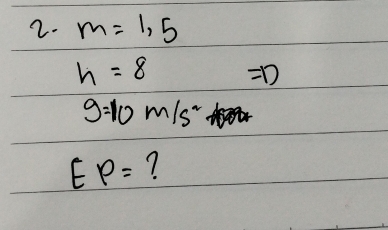 2. m = 1,5
h = 8 =D
g=10 m/s²
EP = ?